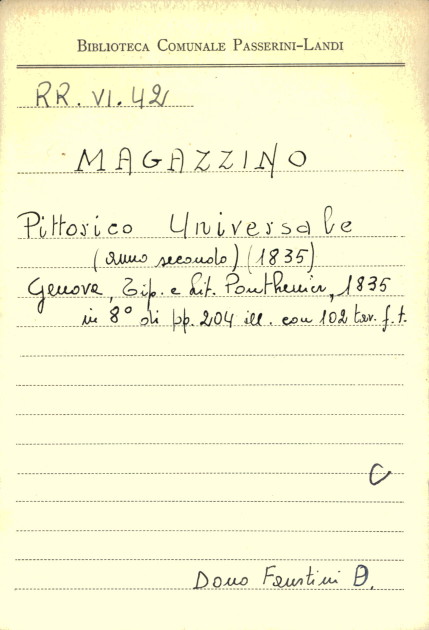 BIBLIOTECA COMUNALE PASSERINI-LANDI
RR. VI. 42
MAGAZZINO
Pittorico Universale
(anno secondo) (1835)
Genova, Tip. e Lit. Ponthenier, 1835
in 8° di pp. 204 ill. con 102 tav. f. t.
C
Dono Faustini D.